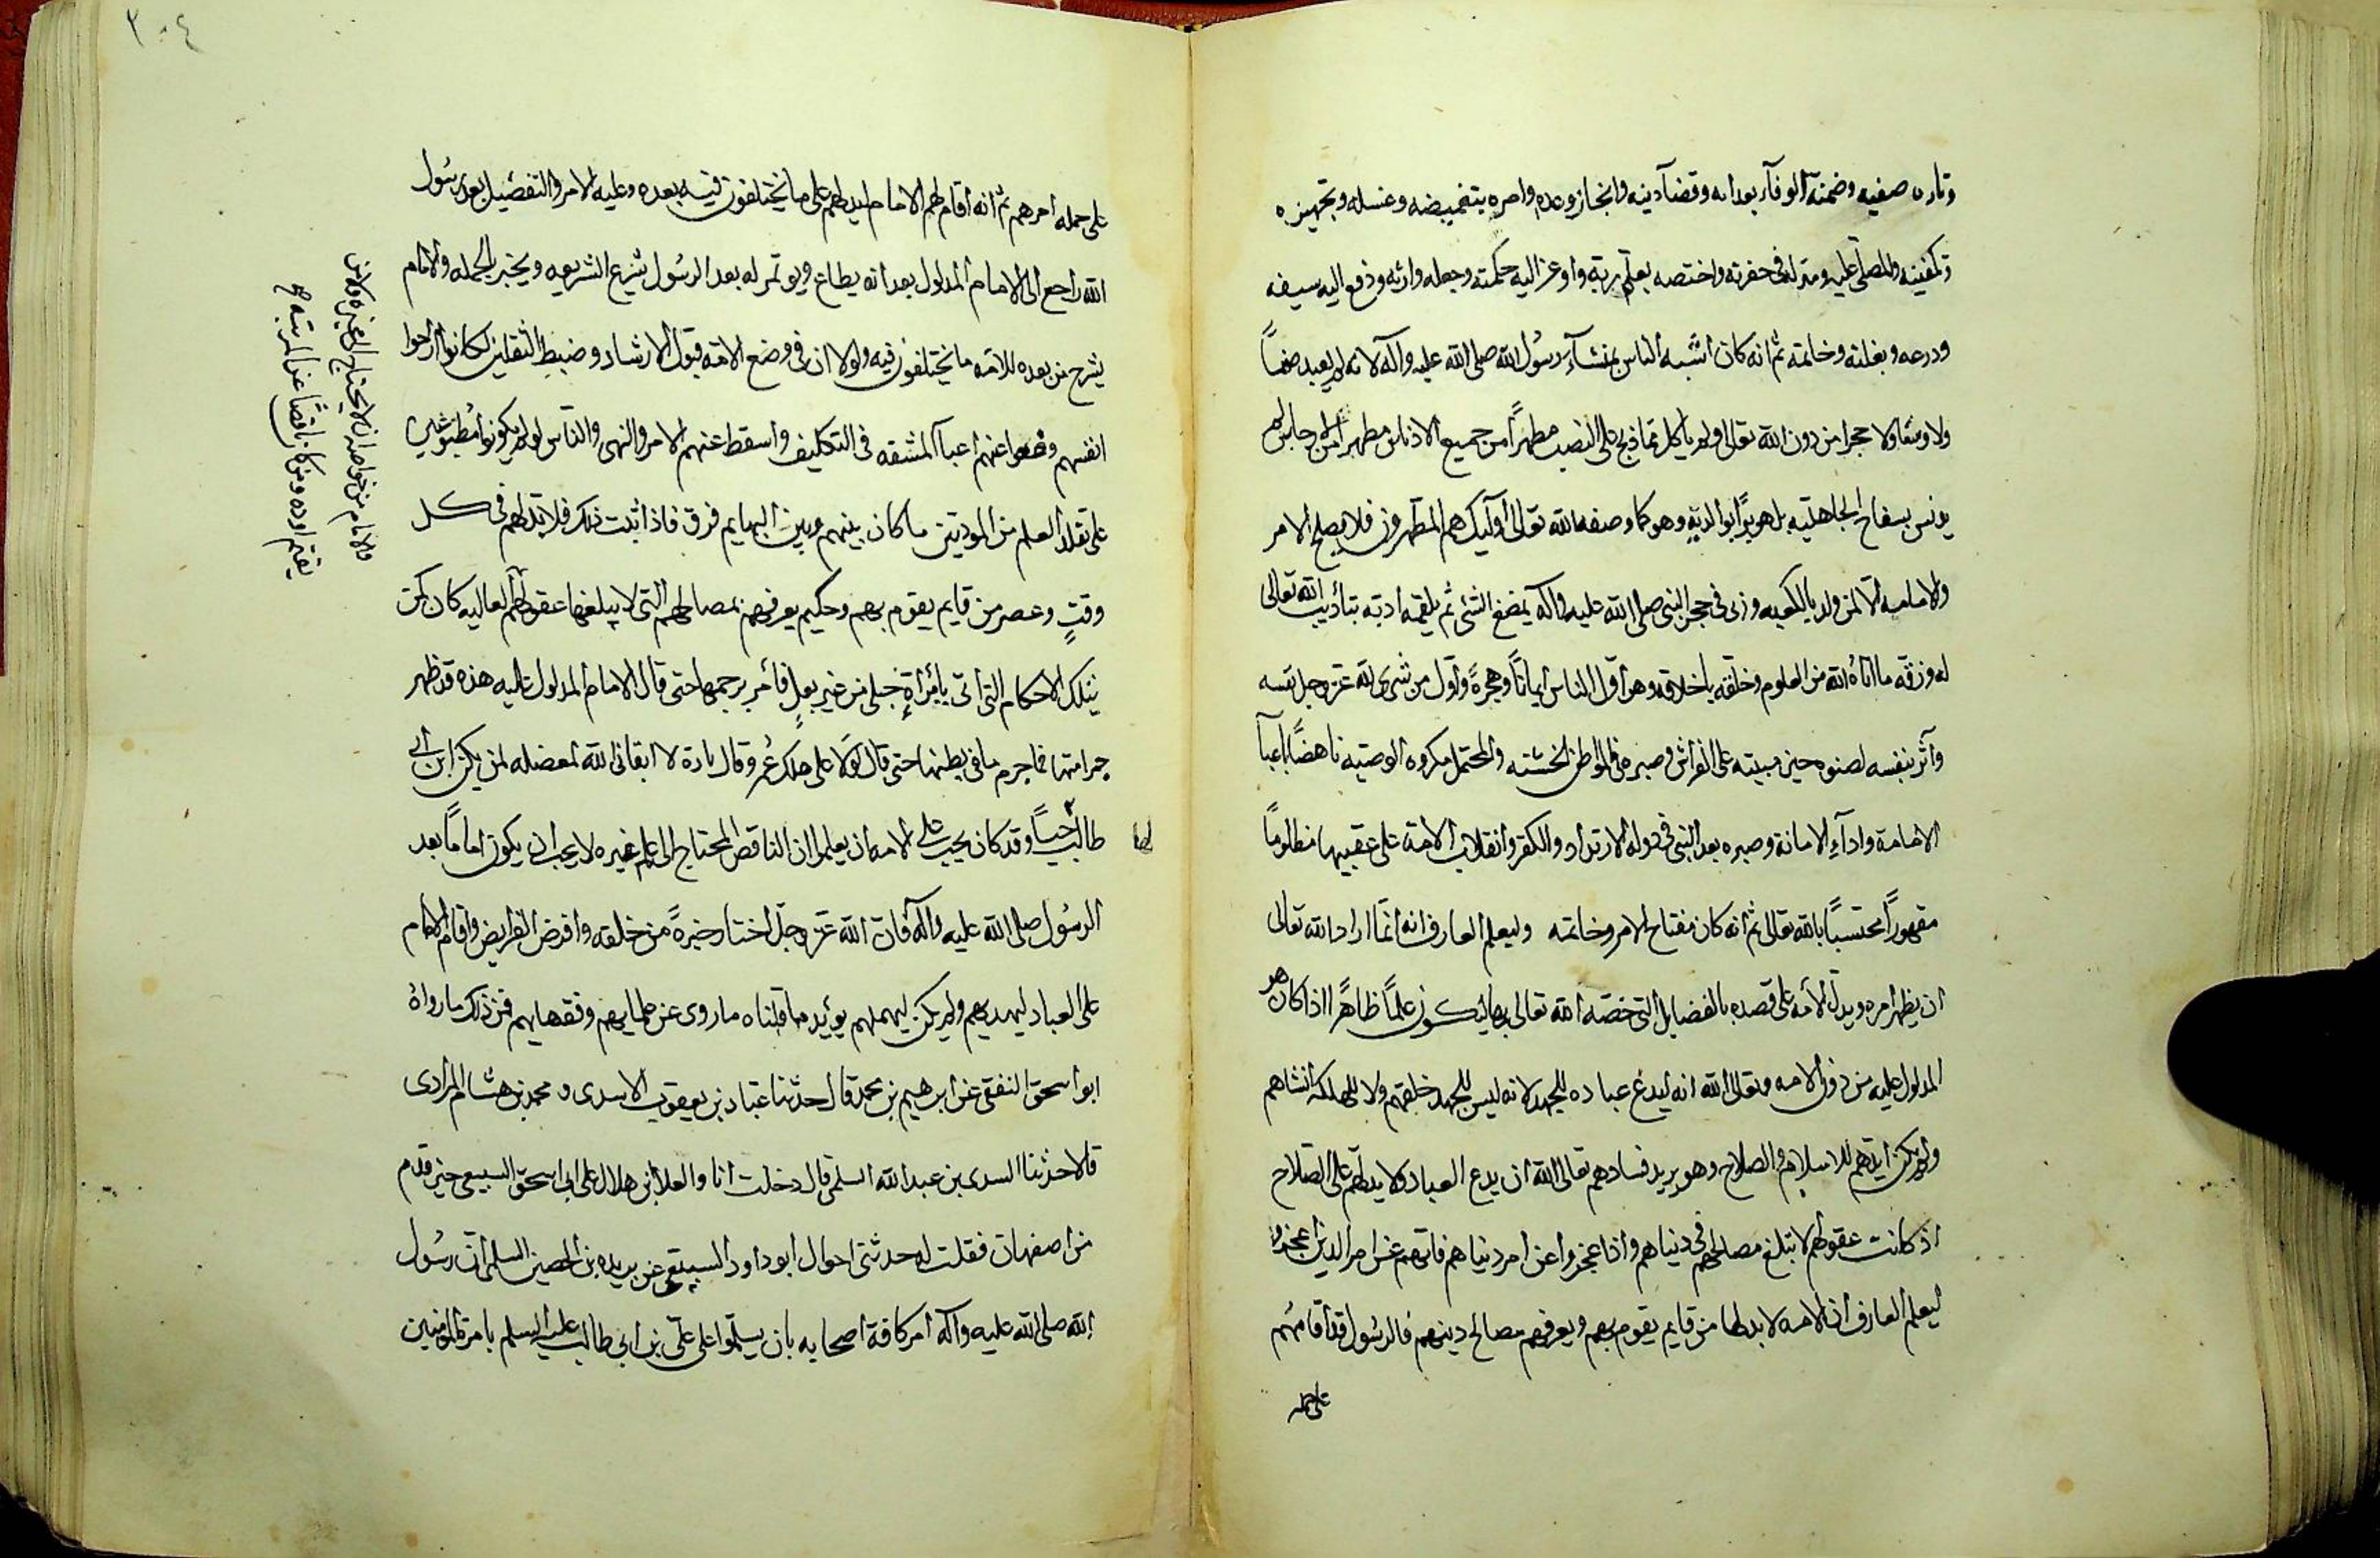 وتارة صفيه وضمنه الوفآء بعداته وقضآ دينه وانجاز وعده وامره بتغميضه وغسله وتجهيزه
وتكفينه والصلى عليه ومنزله فى حفرته واختصه بعلم ربه واوعز اليه حكمته وجعله وارثه ودفع اليه سيفه
ودرعه وبغلته وخاتمه ثم انه كان اشبه الناس بمنشآء رسول الله صلى الله عليه وآله لانه لم يعبد صنماً
ولا وثنا ولا حجرا من دون الله تعالى ولم ياكل مما ذبح على النصب مطهراً من جميع الادناس مطهراً من الارجاس لم
يدنس بسفاح الجاهلية بل هو برّ ابو البريّه وهو كما وصفه الله تعالى اوليك هم المتطهرون فلا يصلح الامر
والامامه الا لمن ولد بالكعبه وربى فى حجر النبى صلى الله عليه وآله يمضغ الشئ ثم يلقمه ادبه بتأديب الله تعالى
له وزقّه ما اتاه الله من العلوم وخلّقه باخلاقه وهو اوّل الناس ايماناً وهجرةً واوّل من شرى لله عز وجل نفسه
وآثر بنفسه لصنوه حين مبيته على الفراش وصبره فى المواطن الخشنه والمحتمل مكروه الوصيه ناهضاً باعبآ
الامامة وادآء الامانة وصبره بعد النبى فى دوله الارتداد والكفر وانقلاب الامّة على عقبيها مظلوماً
مقهوراً محتسباً بالله تعالى ثم انه كان مفتاح الامر وخاتمه وليعلم العارف انه انما اراد الله تعالى
ان يظهر امره ويدل الأمه على قصده بالفضايل التى خصّه الله تعالى بها ليكون علماً ظاهراً اذا كان هو
المدلول عليه من دون الامه وتعالى الله انه ليدع عباده للجهد لانه ليس للجهد خلقهم ولا للهلكه انشاهم
ولم يكن ايّدهم للاسلام والصلاح وهو يريد فسادهم تعالى الله ان يدع العباد ولا يدلهم على الصلاح
اذ كانت عقولهم لا تبلغ مصالحهم فى دنياهم واذا عجزوا عن امر دنياهم فانهم عن امر الدين اعجزوا
ليعلم العارف ان الامه لا بد لها من قايم يقوم بهم ويعرفهم مصالح دينهم فالرسول قد أقامهم
على جمله
٣٠٤
على جمله امرهم ثم انه اقام لهم الامام ليدلهم على ما يختلفون فيه بعده وعليه الامر والتفصيل بعد رسول
الله راجع الى الامام المدلول بعد انه يطاع ويوتمر له بعد الرسول بشرع الشريعه ويخبر بالجمله والامام
يشرح من بعده للامّه ما يختلفون فيه ولولا ان فى وضع الامّه قبول الارشاد وضبط الثقلين لكانوا اراحوا
انفسهم ووضعوا عنهم اعبآ المشقه فى التكليف واسقط عنهم الامر والنهى والناس لو لم يكونوا مطبوعين
على تقلد العلم من المودبين ما كان بينهم وبين البهايم فرق فاذا ثبت ذلك فلا بد لهم فى كل
وقتٍ وعصر من قايم يقوم بهم وحكيم يعرفهم بمصالحهم التى لا يبلغها عقولهم العاليه كان كمن
بتلك الاحكام التى اتى بامرأةٍ حبلى من غير بعلٍ فأمر برجمها حتى قال الامام المدلول عليه هذه قد ظهر
جرامتها فما جرم ما فى بطنها حتى قال لولا على هلك عُمر وقال تارة لا ابقانى الله لمعضله لم يكن ابن ابى
طالب حياً وقد كان يجب على الامه ان يعلموا ان الناقص المحتاج الى علم غيره لا يجب ان يكون اماماً بعد
الرسول صلى الله عليه وآله فان الله عزّ وجلّ اختار خيرةً من خلقه وافرض الفرايض واقام الامام
على العباد ليهديهم ولم يكن ليهملهم يؤيد ما قلناه ما روى عن علمايهم وفقهايهم فمن ذلك ما رواه
ابو اسحق الثقفى عن ابرهيم بن محمد قال حدثنا عباد بن يعقوب الاسدى ومحمد بن هشام المرادى
قالا حدثنا السدى بن عبد الله السلمى قال دخلت انا والعلا بن هلال على ابى اسحق السبيعى حين قدم
من اصفهان فقلت له حدثنى اخوك ابو داود السبيعى عن بريده بن الحصين السلمى ان رسول
الله صلى الله عليه وآله امر كافة اصحابه بان يسلّموا على علىّ بن ابى طالب عليه السلم بامرة المومنين
والامام من خواصه ان لا يحتاج الى غيره ولا من
يقيم اوده ومن كان ناقصاً عن المرتبه